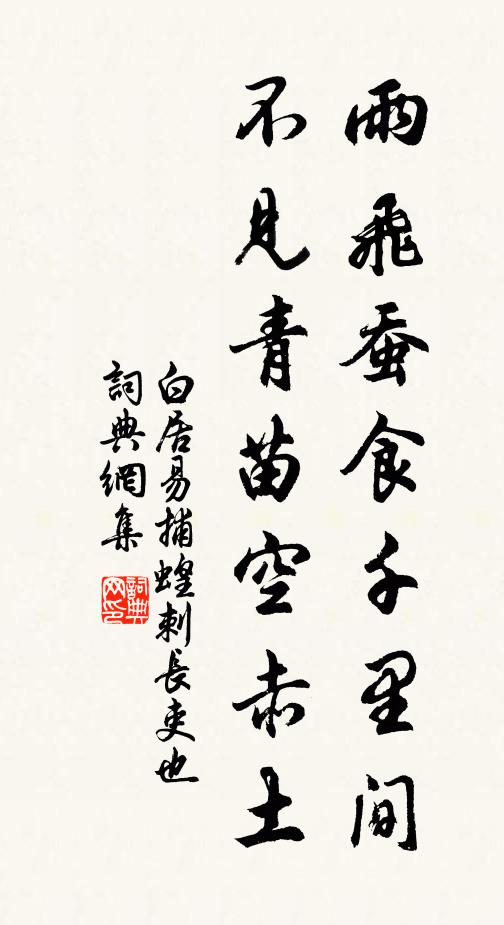 雨飛蚕食千里間
不見青苗空赤土
白居易捕蝗刺長吏也
詞典網集
詞典網印